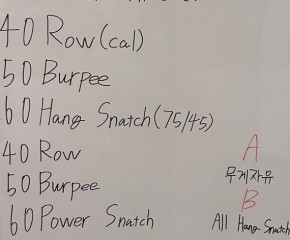 40 Row(cal)
50 Burpee
60 Hang Snatch(75/45)
40 Row
50 Burpee
60 Power Snatch
A
무게자유
B
All Hang Snatch